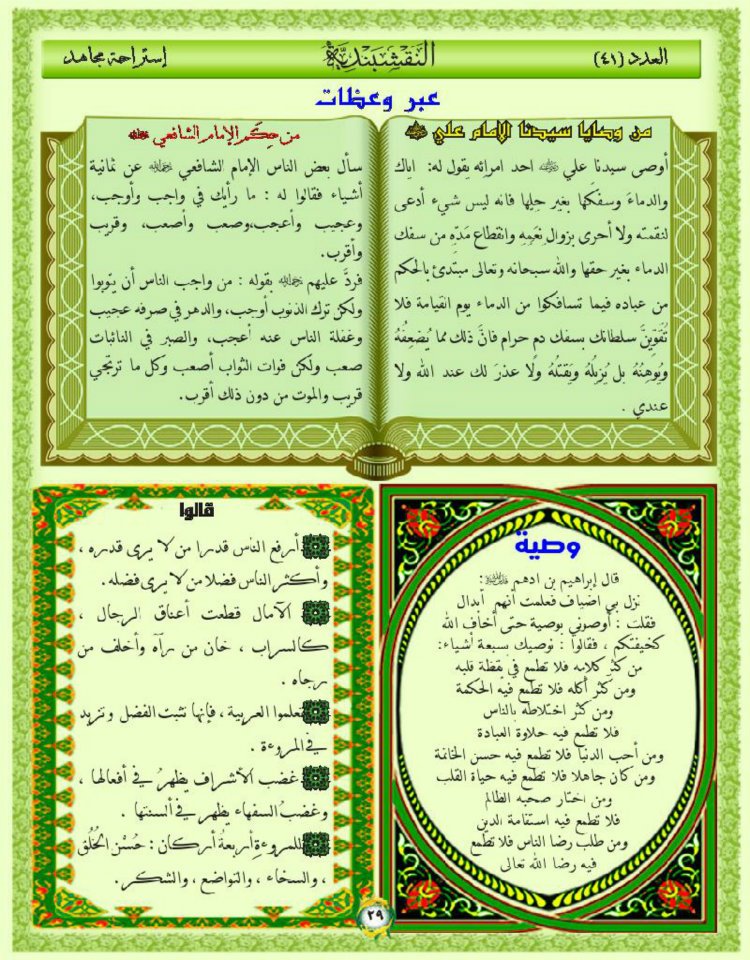 العدد (٤١)
النقشبندية
إستراحة مجاهد
عبر وعظات
من وصايا سيدنا الإمام علي
أوصى سيدنا علي احد امرائه بقول له: اياك
والدماءَ وسفكَها بغير حِلِها فانه ليس شيء أدعى
لنقمته ولا أحرى بزوال نِعَمِهِ وانقطاع مَدّهِ من سفك
الدماء بغير حقها والله سبحانه وتعالى مبتدئ بالحكم
من عباده فيما تسافكوا من الدماء يوم القيامة فلا
تُقَوّيَنَّ سلطانك بسفك دم حرام فانَّ ذلك مما يُضعِفُهُ
ويُوهِنُهُ بل يُزيلُهُ ويَقتلُهُ ولا عذرَ لك عند الله ولا
عندي .
من حِكَم الإمام الشافعي
سأل بعض الناس الإمام لشافعي عن ثمانية
أشياء فقالوا له : ما رأيك في واجب وأوجب،
وعجيب وأعجب،وصعب وأصعب، وقريب
وأقرب.
فردَّ عليهم بقوله : من واجب الناس أن يتوبوا
ولكن ترك الذنوب أوجب، والدهر في صرفه عجيب
وغفلة الناس عنه أعجب، والصبر في النائبات
صعب ولكن فوات الثواب أصعب وكل ما ترتجي
قريب والموت من دون ذلك أقرب.
وصية
قال إبراهيم بن ادهم :
نزل بي اضياف فعلمت أنهم أبدال
فقلت : أوصوني بوصية حتى أخاف الله
كخيفتكم ، فقالوا : نوصيك بسبعة أشياء:
من كثر كلامه فلا تطمع في يقظة قلبه
ومن كثر أكله فلا تطمع فيه الحكمة
ومن كثر اختلاطه بالناس
فلا تطمع فيه حلاوة العبادة
ومن أحب الدنيا فلا تطمع فيه حسن الخاتمة
ومن كان جاهلا فلا تطمع فيه حياة القلب
ومن اختار صحبه الظالم
فلا تطمع فيه استقامة الدين
ومن طلب رضا الناس فلا تطمع
فيه رضا الله تعالى
قالوا
أرفع الناس قدرا من لا يرى قدره ،
وأكثر الناس فضلا من لا يرى فضله .
الآمال قطعت أعناق الرجال ،
كالسراب ، خان من رآه وأخلف من
رجاه .
تعلموا العربية ، فإنها تثبت الفضل وتزيد
في المروءة .
غضب الأشراف يظهرُ في أفعالها ،
وغضبُ السفهاء يظهر في ألسنتها .
للمروءةِ أربعةُ أركان : حُسْن الخُلُق
، والسخاء ، والتواضع ، والشكر .
٢٩